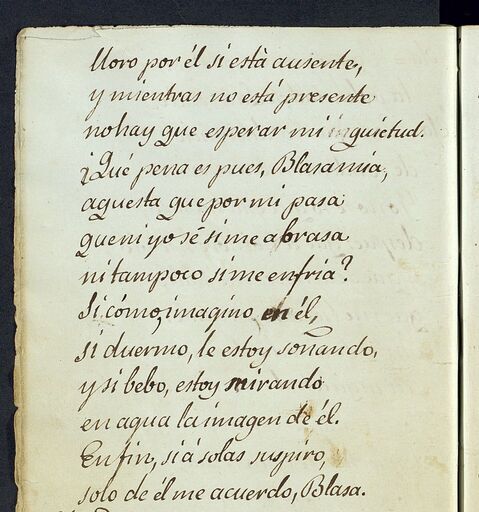 lloro por él si està ausente,
y mientras no está presente
no hay que esperar mi inquietud.
¿Qué pena es pues, Blasa mia,
aquesta que por mi pasa
que ni yo sé si me abrasa
ni tampoco si me enfria?
Si cómo, imagino en él,
si duermo, le estoy soñando,
y si bebo, estoy mirando
en agua la imagen de él.
En fin, si á solas suspiro,
solo de él me acuerdo, Blasa.